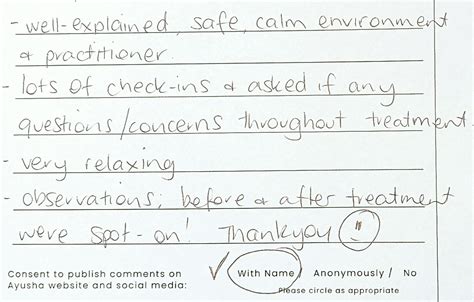 - well-explained, safe, calm environment
& practitioner.
- lots of check-ins & asked if any
questions/concerns throughout treatment.
- very relaxing
- observations; before & after treatment
were spot-on! Thankyou
Consent to publish comments on
Ayusha website and social media:
With Name / Anonymously / No
Please circle as appropriate